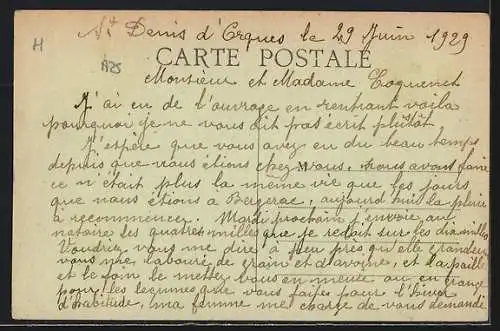 St Denis d'Orques le 29 Juin 1929
H
A25
CARTE POSTALE
Monsieur et Madame
J'ai eu de l'ouvrage en rentrant voila
pourquoi je ne vous ait pas écrit plûtôt
J'espère que vous avez eu du beau temps
depuis que nous étions chez vous, nous avons faire
ce n'était plus la même vie que les jours
que nous étions a Bergerac, aujourd'hui la pluie
a recommencez. Mardi prochain j'envoie au
notaire les quatres milles que je redoit sur les dix milles
Voudrez vous me dire a peu près qu'elle grandeur
vous me labouré de grain et d'avoine, et la paille
et le foin le mettez vous en meule ou en grange
pour les légumes que vous faites pour l'hiver
d'habitude, ma femme me charge de vous demandé